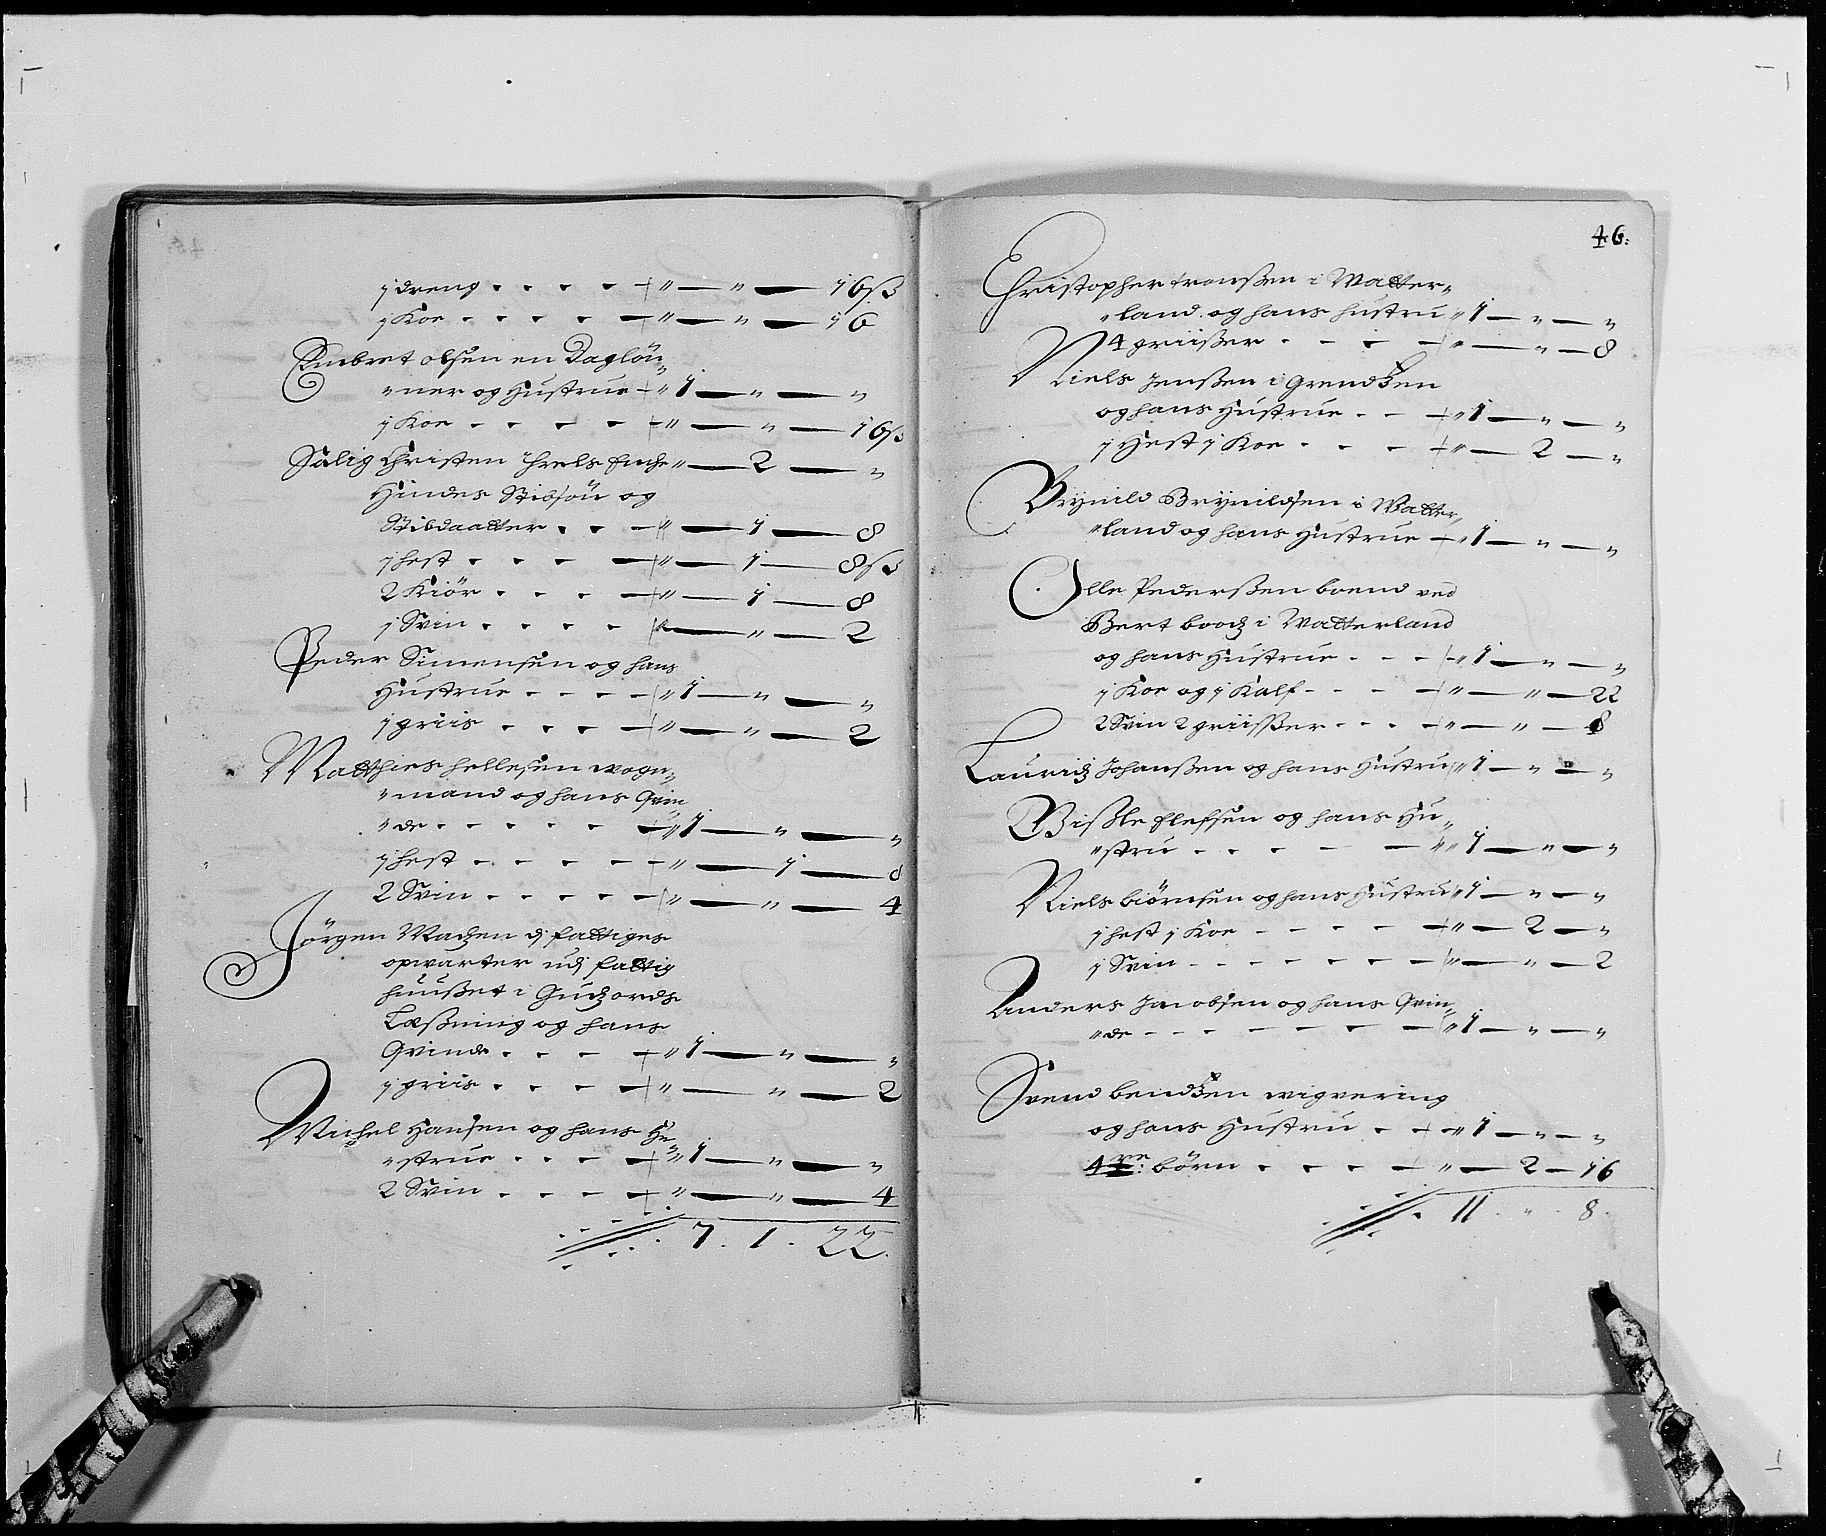 j dreng . . . . " — " — 16 ß
j Koe . . . . " — " — 16
Embret olsen en Daglön„
„ner og Hustrue " 1 — " — "
j Koe . . . . " — " — 16 ß
Salig Christen " — 2 — "
Hindes Stibsön og
Stibdaatter . . . " — 1 — 8
j hest . . . . " — 1 — 8 ß
2 Kiör . . . . " — 1 — 8
j Svin . . . . — " — 2
Peder Simensen og hans
Hustrue . . . . " 1 — " — "
j griis . . . . " — " — 2
Matthies hellesen vogn„
„mand og hans Qvin„
„de . . . . . " 1 — " — "
j hest . . . . . " — 1 — 8
2 Svin . . . . . " — " — 4
Jörgen Madzen dj fattiges
opvarter udj fattig
huusset i Gudzords
Læssning og hans
Qvinde . . . . " 1 — " — "
j griis . . . . " — " — 2
Michel Hansen og hans Hu„
„strue . . . . " 1 — " — "
2 Svin . . . . " — " — 4
7 . 1 . 22.
46:
Christopher tronssen i Watter„
„land og hans hustru " 1 — " — "
4 griisser . . . " — " — 8
Niels Jenssen i Grendzen
og hans Hustrue . . " 1 — " — "
j Hest j Koe . . . . " — 2 — "
Brynild Brynildsen i Watter„
„land og hans Hustrue " 1 — " — "
Olle Pederssen boend ved
Bert boodz i Watterland
og hans Hustrue . . . " 1 — " — "
j Koe og j Kalf . . . " — " — 22
2 Svin 2 griisser . . . . " — " — 8
Lauridz Johanssen og hans Hustru " 1 — " — "
og hans Hu„
„stru . . . . . " 1 — " — "
Niels biörnsen og hans Hustru " 1 — " — "
j hest j Koe . . . . " — 2 — "
j Svin . . . . . . " — " — 2
Anders Jacobsen og hans Qvin„
„de . . . . . . " 1 — " — "
Svend bendzen
og hans Hustru . . " 1 — " — "
4re: börn . . . . " — 2 — 16
11 . " . 8.